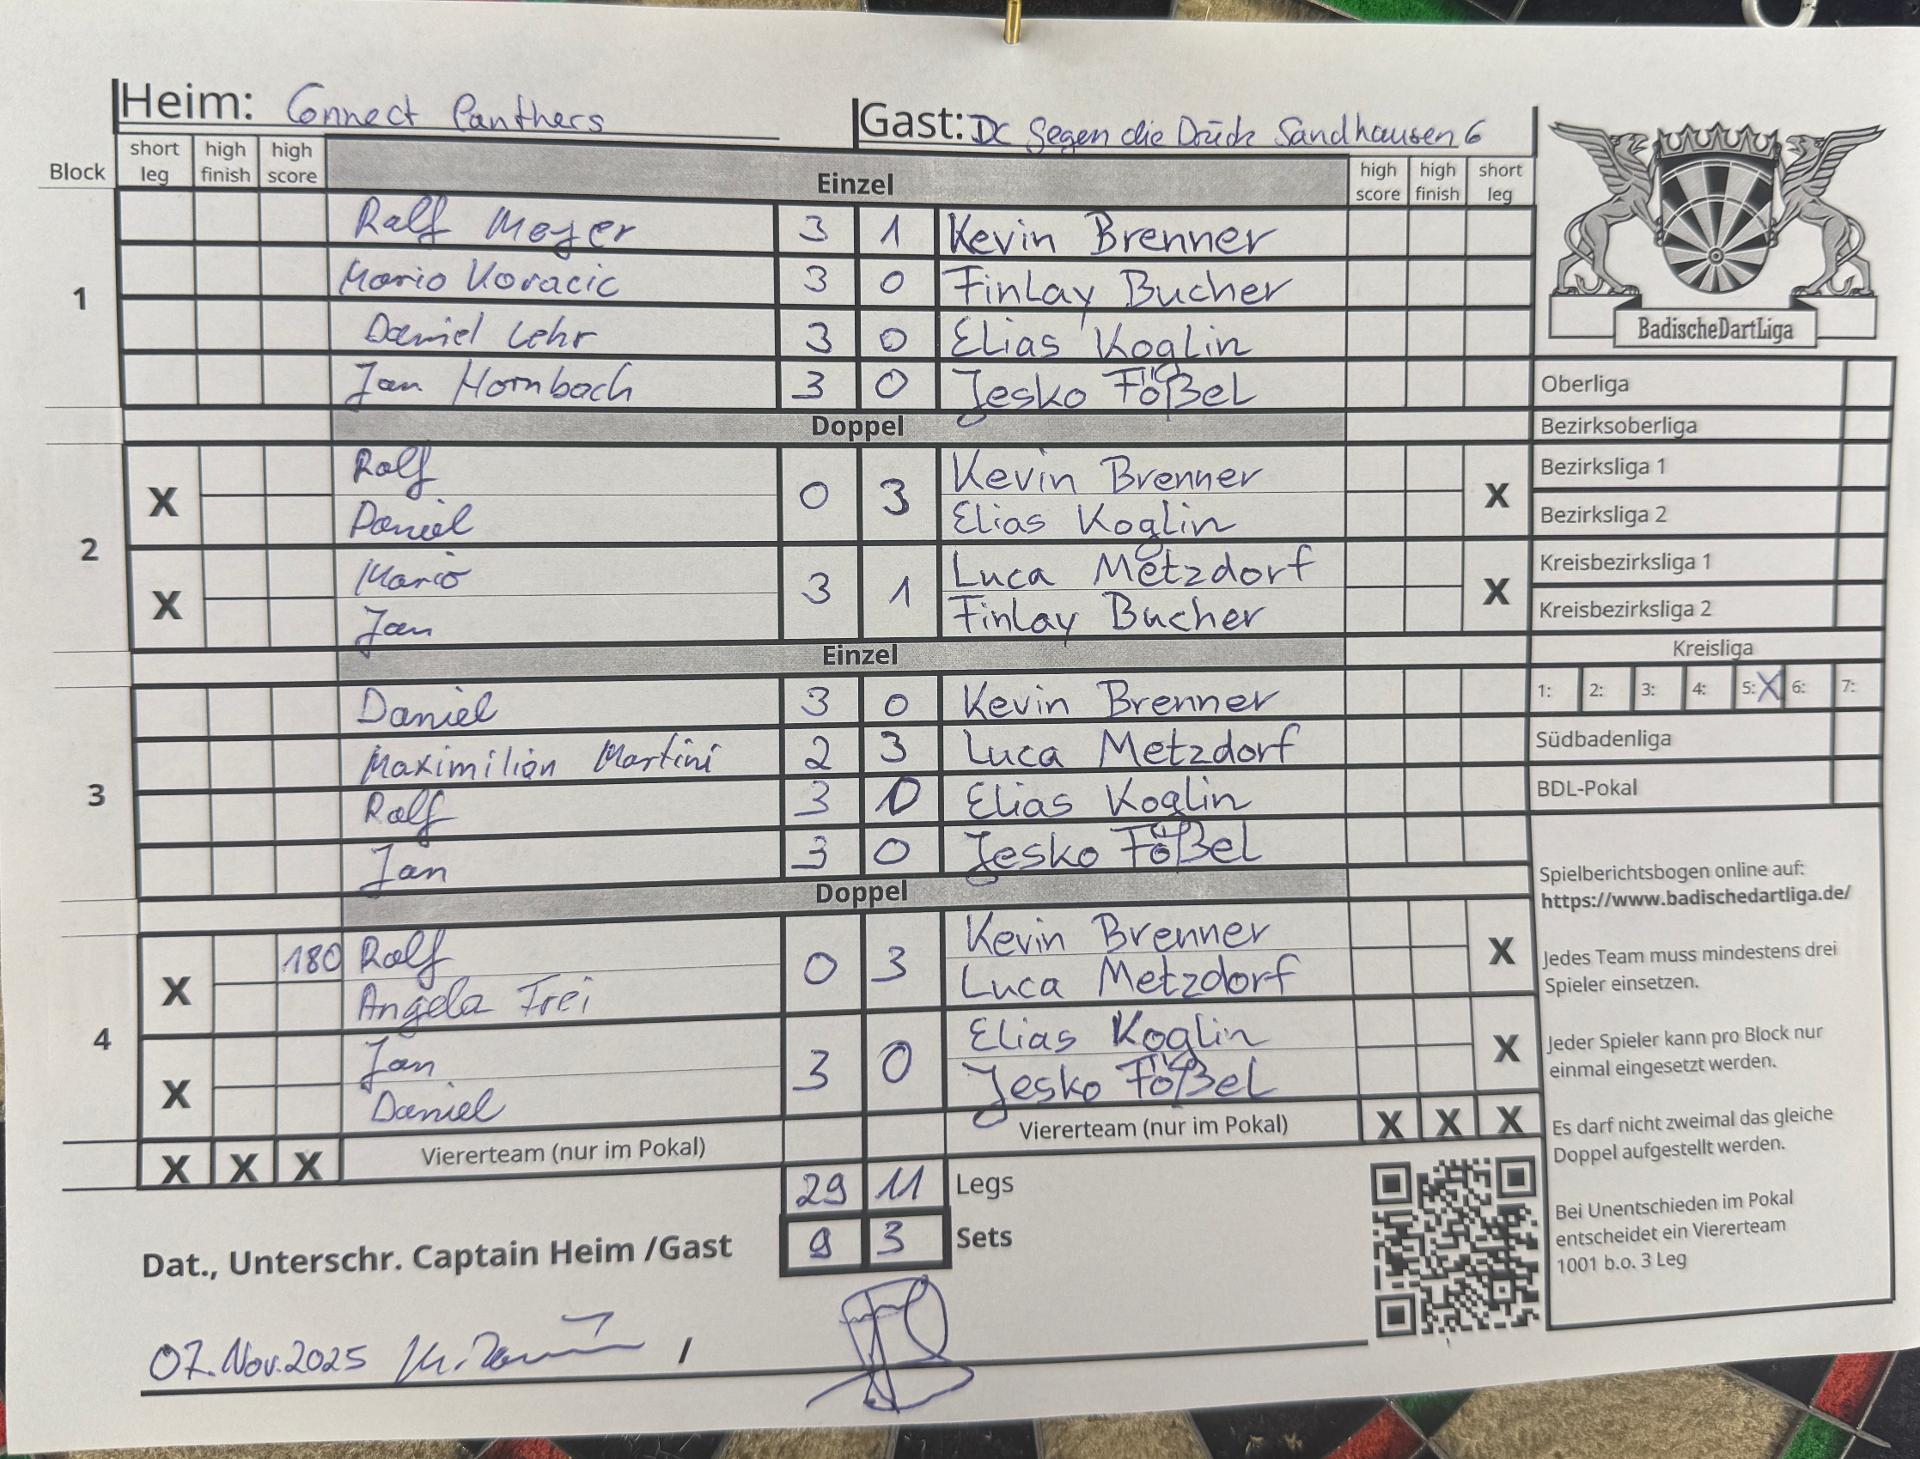 Heim: Connect Panthers Gast: DC Gegen die Drück Sandhausen 6
Block short leg high finish high score Einzel high score high finish short leg
1
Ralf Meyer 3 1 Kevin Brenner
Mario Kovacic 3 0 Finlay Bucher
Daniel Lehr 3 0 Elias Koglin
Jan Hornbach 3 0 Jesko Fößel
Doppel
2
X Ralf 0 3 Kevin Brenner X
Daniel Elias Koglin
X Mario 3 1 Luca Metzdorf X
Jan Finlay Bucher
Einzel
3
Daniel 3 0 Kevin Brenner
Maximilian Martini 2 3 Luca Metzdorf
Ralf 3 0 Elias Koglin
Jan 3 0 Jesko Fößel
Doppel
4
X 180 Ralf 0 3 Kevin Brenner X
Angela Frei Luca Metzdorf
X Jan 3 0 Elias Koglin X
Daniel Jesko Fößel
X X X Viererteam (nur im Pokal) Viererteam (nur im Pokal) X X X
29 11 Legs
9 3 Sets
Dat., Unterschr. Captain Heim /Gast
07.Nov.2025 /
BadischeDartLiga
Oberliga
Bezirksoberliga
Bezirksliga 1
Bezirksliga 2
Kreisbezirksliga 1
Kreisbezirksliga 2
Kreisliga
1: 2: 3: 4: 5: X 6: 7:
Südbadenliga
BDL-Pokal
Spielberichtsbogen online auf:
https://www.badischedartliga.de/
Jedes Team muss mindestens drei
Spieler einsetzen.
Jeder Spieler kann pro Block nur
einmal eingesetzt werden.
Es darf nicht zweimal das gleiche
Doppel aufgestellt werden.
Bei Unentschieden im Pokal
entscheidet ein Viererteam
1001 b.o. 3 Leg